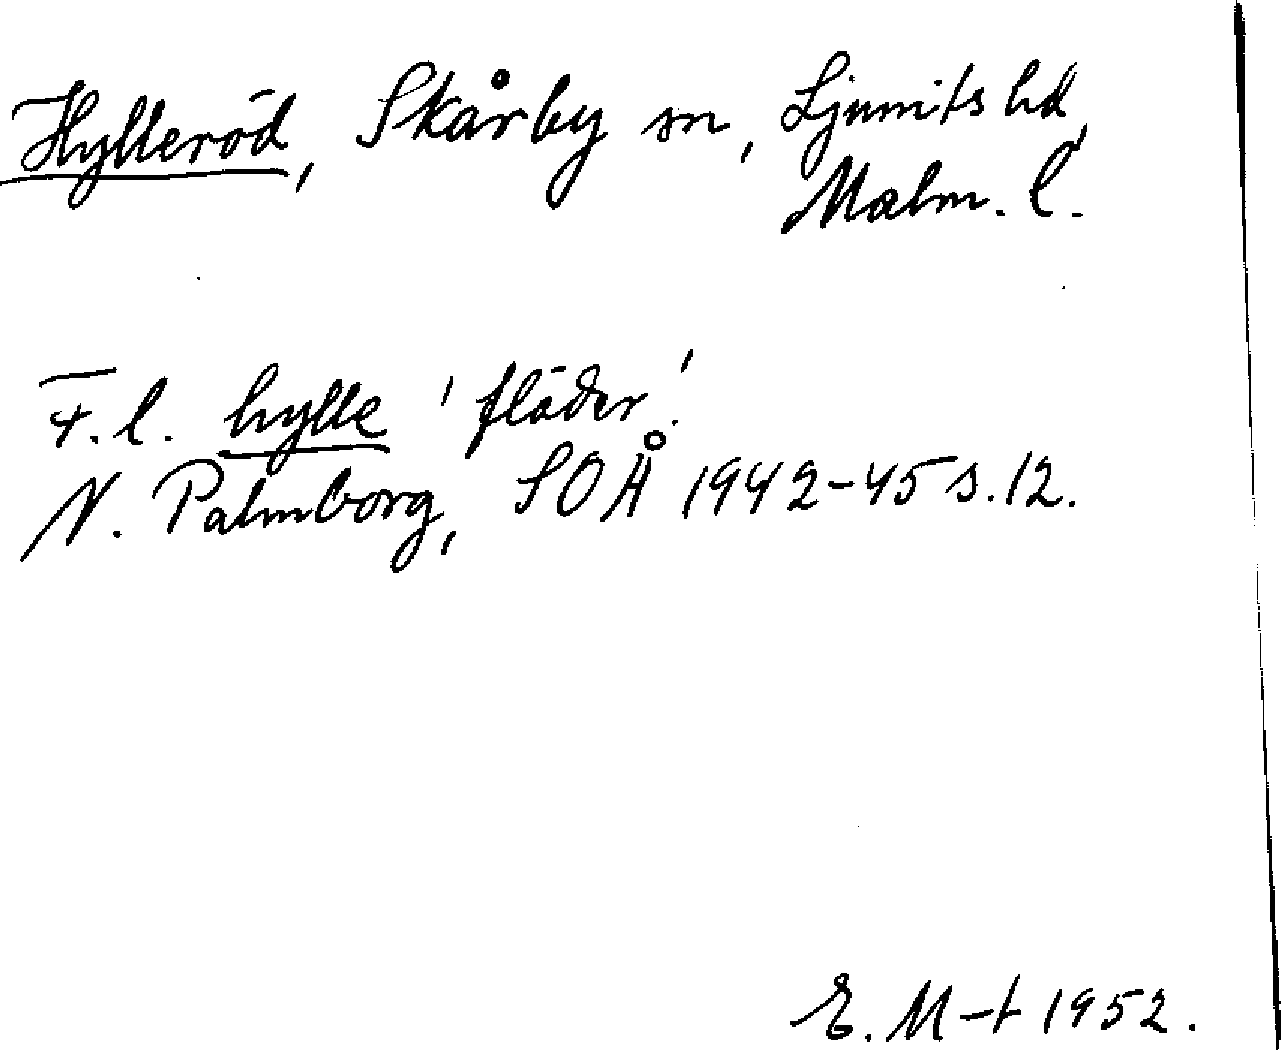 Hylleröd, Skårby sn, Ljunits hd,
Malm. l.
F. l. hylle 'fläder'.
N. Palmborg, SOÅ 1942-45 s. 12.
E. M-t 1952.